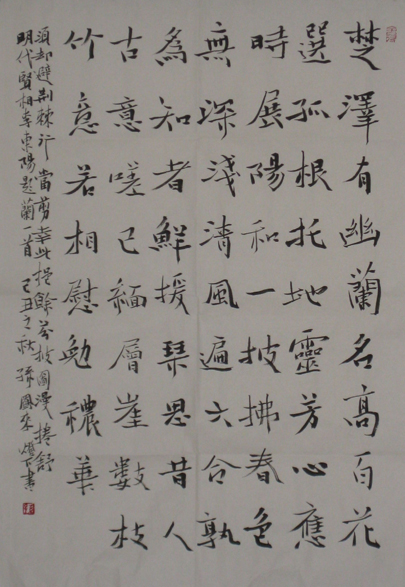 楚澤有幽蘭名高百花
選孤根托地靈芳心應
時展陽和一披拂春色
無深淺清風遍六合孰
為知者鮮援琴思昔人
古意嗟已緬層崖數枝
竹意若相慰勉穠華
須却避荆棘行當剪幸此挹餘芬披圖漫捲舒
明代賢相李東陽題蘭一首己丑之秋孫鳳來燈下書